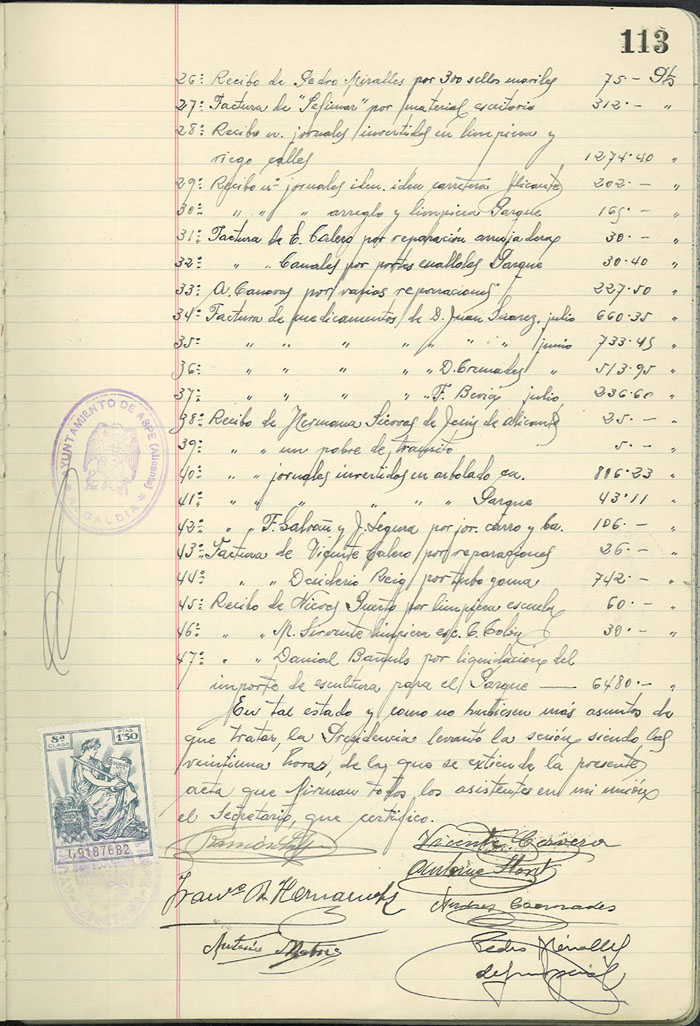 113
26ª Recibo de Pedro Miralles por 300 sellos moviles 75·— Pts
27ª Factura de "Sefimar" por material escritorio 312·— "
28ª Recibo n. jornales invertidos en limpieza y
riego calles 1274·40 "
29ª Recibo nº jornales iden. iden carretera Alicante 202·— "
30ª " " " arreglo y limpieza Parque 165·— "
31ª Factura de E. Calero por reparación 30·— "
32ª " " Canales por portes Parque 30·40 "
33ª A. Canovas por varias reparaciones 227·50 "
34ª Factura de medicamentos de D. Juan Suarez. julio 660·35 "
35ª " " " " " " " junio 733·45 "
36ª " " " " " D. Cremades " 513·95 "
37ª " " " " " F. julio 236·60 "
38ª Recibo de Hermana Siervas de Jesus de Alicante 25·— "
39ª " " un pobre de transito 5·— "
40ª " " jornales invertidos en arbolado ca. 806·23 "
41ª " " " " " " Parque 43·11 "
42ª " " F. Galvañ y J. Segura por jor. carro y ba. 106·— "
43ª Factura de Vicente Calero por reparaciones 26·— "
44ª " " Desiderio Reig por tubo goma 742·— "
45ª Recibo de Nieves Puerto por limpieza escuela 60·— "
46ª " " M. Sirvente limpieza esc. C. Colón 30·— "
47ª " " Daniel Bañuls por liquidación del
importe de escultura para el Parque — 6480·— "
En tal estado y como no hubiesen más asuntos de
que tratar, la Presidencia levantó la sesión siendo las
veintiuna horas, de la que se extiende la presente
acta que firman todos los asistentes en mi unión
el Secretario, que certifico.
AYUNTAMIENTO DE ASPE (Alicante)
ALCALDIA
8ª CLASE
PTAS 1'50
G9187682
Ramón
Vicente Cervera
Antonio
Franco B. Hernandez
Andres Cremades
Antonio
Pedro Miralles